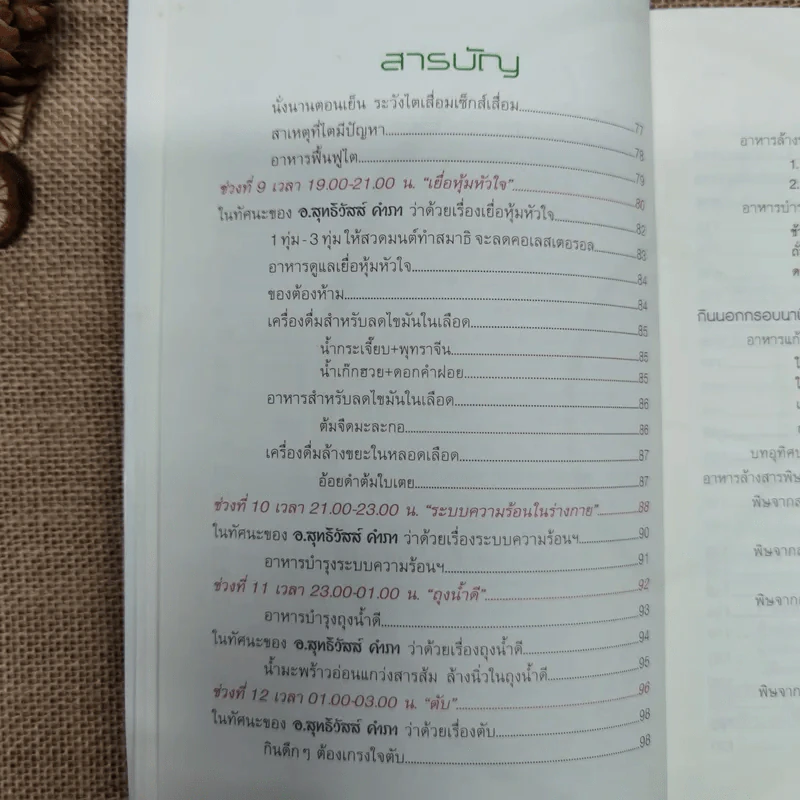 สารบัญ
นั่งนานตอนเย็น ระวังไตเสื่อมเซ็กส์เสื่อม....77
สาเหตุที่ไตมีปัญหา....78
อาหารฟื้นฟูไต....79
ช่วงที่ 9 เวลา 19.00-21.00 น. "เยื่อหุ้มหัวใจ"....80
ในทัศนะของ อ.สุทธิวัสส์ คำภา ว่าด้วยเรื่องเยื่อหุ้มหัวใจ....82
1 ทุ่ม - 3 ทุ่ม ให้สวดมนต์ทำสมาธิ จะลดคอเลสเตอรอล....83
อาหารดูแลเยื่อหุ้มหัวใจ....84
ของต้องห้าม....84
เครื่องดื่มสำหรับลดไขมันในเลือด....85
น้ำกระเจี๊ยบ+พุทราจีน....85
น้ำเก๊กฮวย+ดอกคำฝอย....85
อาหารสำหรับลดไขมันในเลือด....86
ต้มจืดมะละกอ....86
เครื่องดื่มล้างขยะในหลอดเลือด....87
อ้อยดำต้มใบเตย....87
ช่วงที่ 10 เวลา 21.00-23.00 น. "ระบบความร้อนในร่างกาย"....88
ในทัศนะของ อ.สุทธิวัสส์ คำภา ว่าด้วยเรื่องระบบความร้อนฯ....90
อาหารบำรุงระบบความร้อนฯ....91
ช่วงที่ 11 เวลา 23.00-01.00 น. "ถุงน้ำดี"....92
อาหารบำรุงถุงน้ำดี....93
ในทัศนะของ อ.สุทธิวัสส์ คำภา ว่าด้วยเรื่องถุงน้ำดี....94
น้ำมะพร้าวอ่อนแกว่งสารส้ม ล้างนิ่วในถุงน้ำดี....95
ช่วงที่ 12 เวลา 01.00-03.00 น. "ตับ"....96
ในทัศนะของ อ.สุทธิวัสส์ คำภา ว่าด้วยเรื่องตับ....98
กินดึกๆ ต้องเกรงใจตับ....98
อาหารล้าง
1.
2.
อาหารบำรุ
กินนอกกรอบนา
อาหารแก้
บทอุทิศ
อาหารล้างสารพิษ
พิษจาก
พิษจาก
พิษจาก
พิษจาก